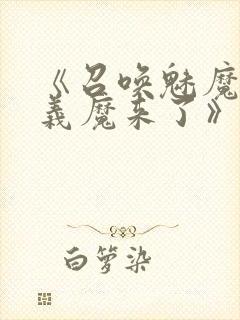 《召唤魅魔
義魔来了》
白箩染